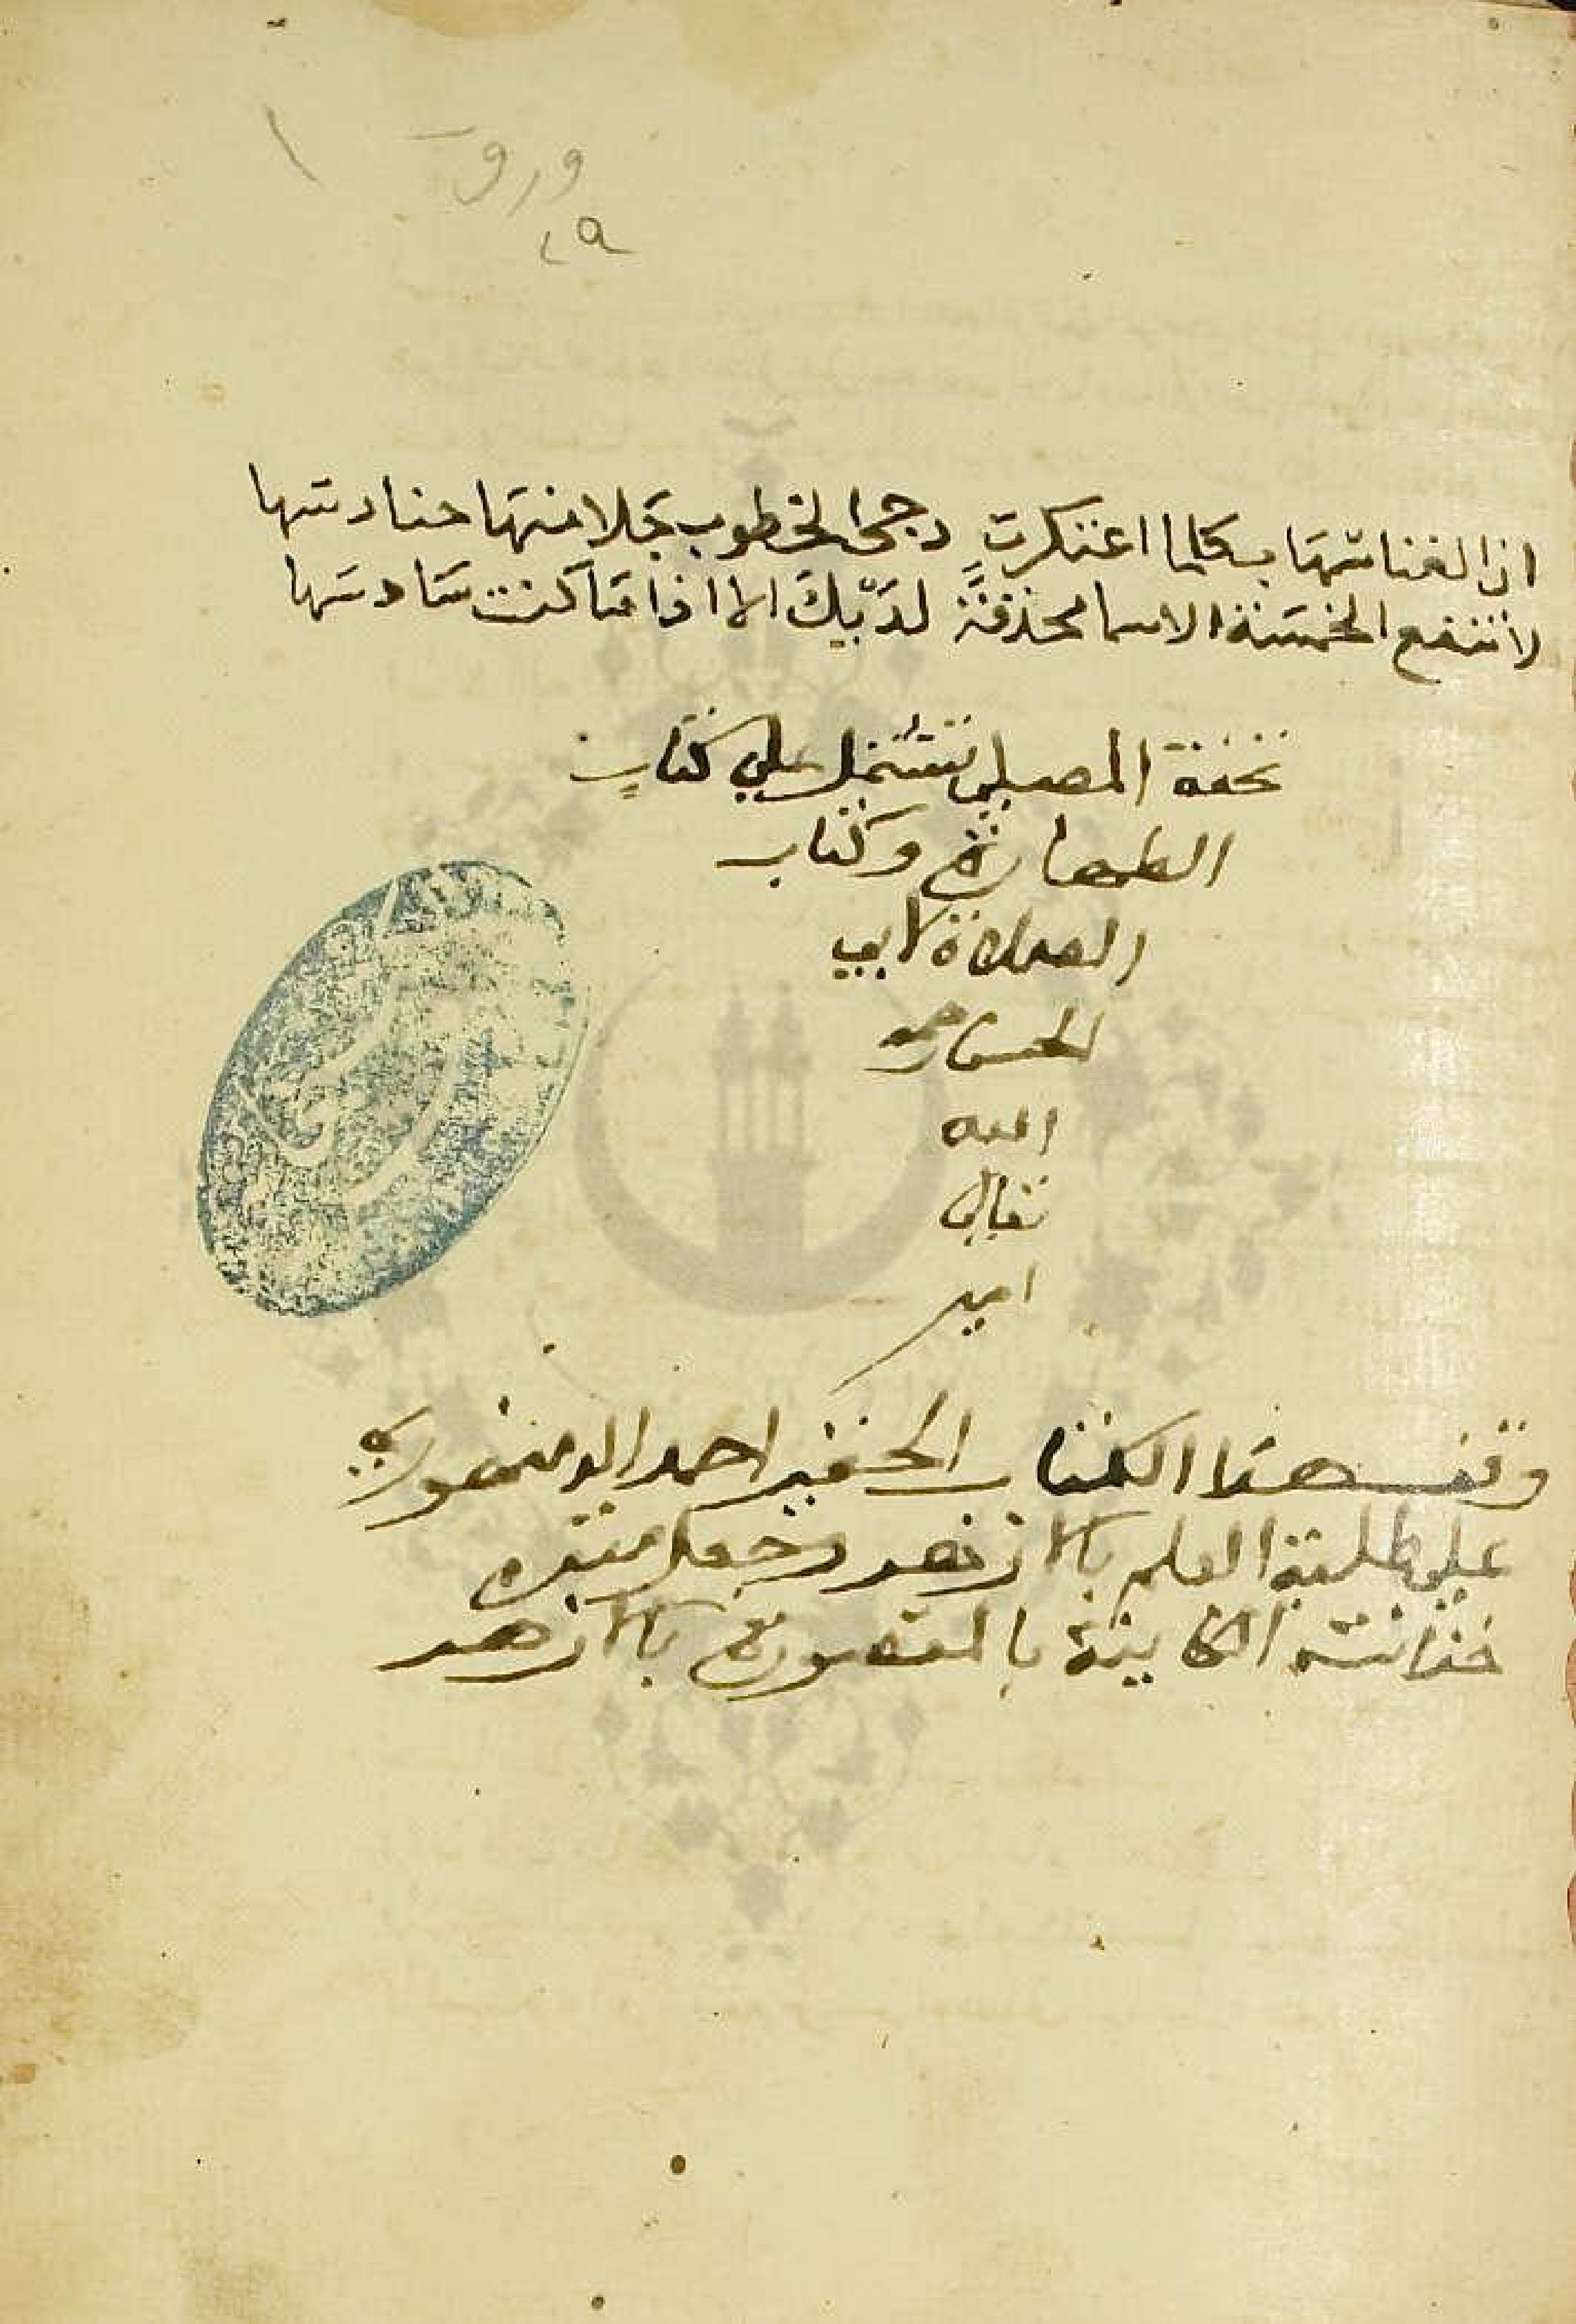 ورق ١
٢٩
ان الغنا شهاب كلما اعتكرت دجى الخطوب جلا منها حنادسها
لا تنفع الخمسة الاسما محذقة لديك الا اذا ما كنت سادسها
تحفة المصلي تشتمل على كتاب
الطهارة وكتاب
الصلاة لابي
الحسن رحمه
الله
تعالى
امين
وقف هذا الكتاب الحقير احمد الدمنهوري
على طلبة العلم بالازهر وجعل مقره
خزانته الكاينة بالمقصورة بالازهر